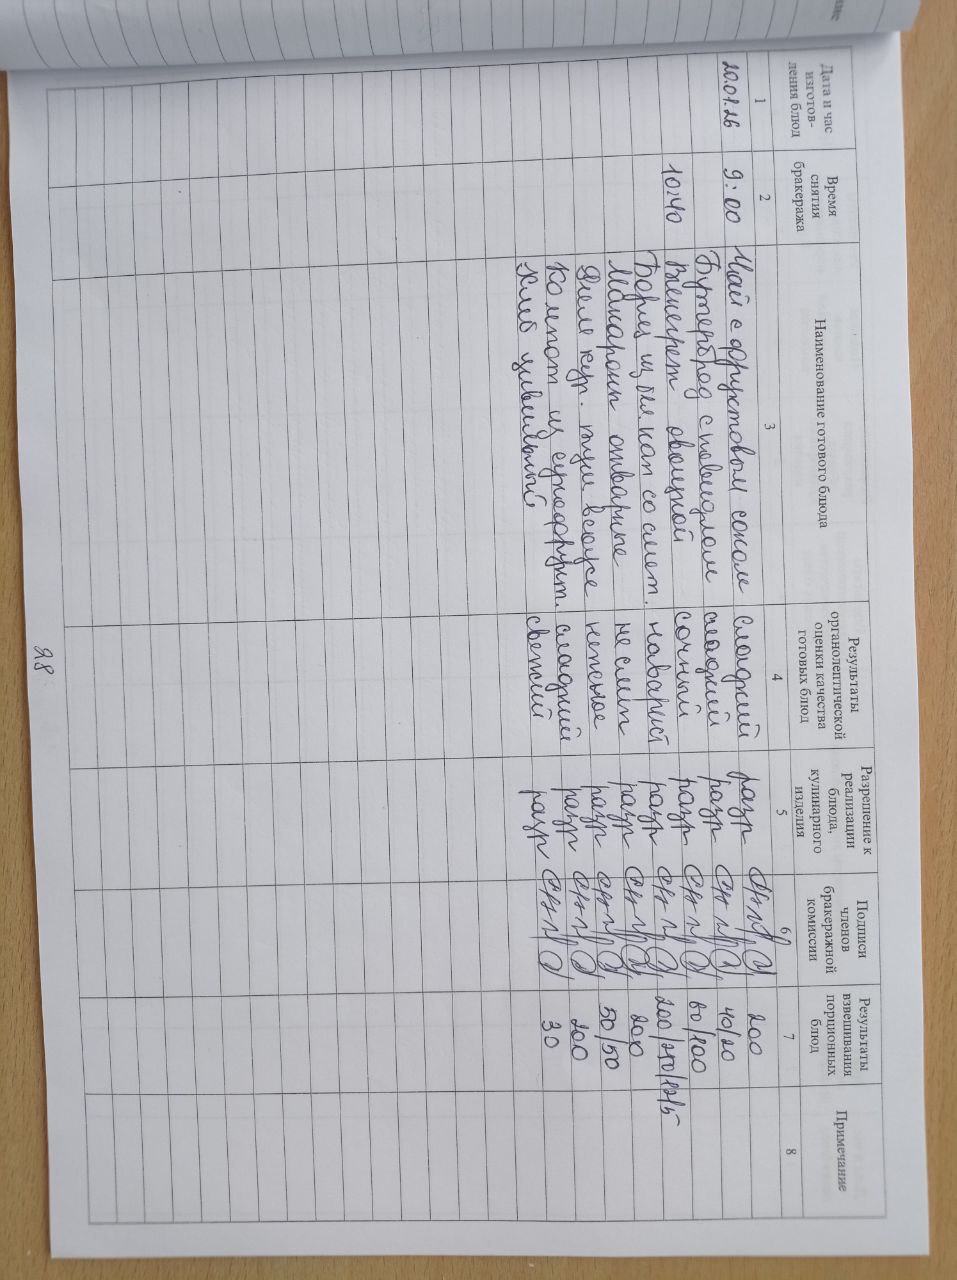 Дата и час изготов-ления блюд
Время снятия бракеража
Наименование готового блюда
Результаты органолептической оценки качества готовых блюд
Разрешение к реализации блюда, кулинарного изделия
Подписи членов бракеражной комиссии
Результаты взвешивания порционных блюд
Примечание
1 2 3 4 5 6 7 8
20.01.26 9:00 Чай с фруктовым соком сладкий разр 200
Бутерброд с повидлом сладкий разр 40/20
10:40 Винегрет овощной сочный разр 60/100
Борщ из св. кап со смет. наварист разр
Макароны отварные не слип разр 200
филе кур. туш в соусе нежное разр 50/50
Компот из сухофрукт. сладкий разр 200
Хлеб свежий разр 30